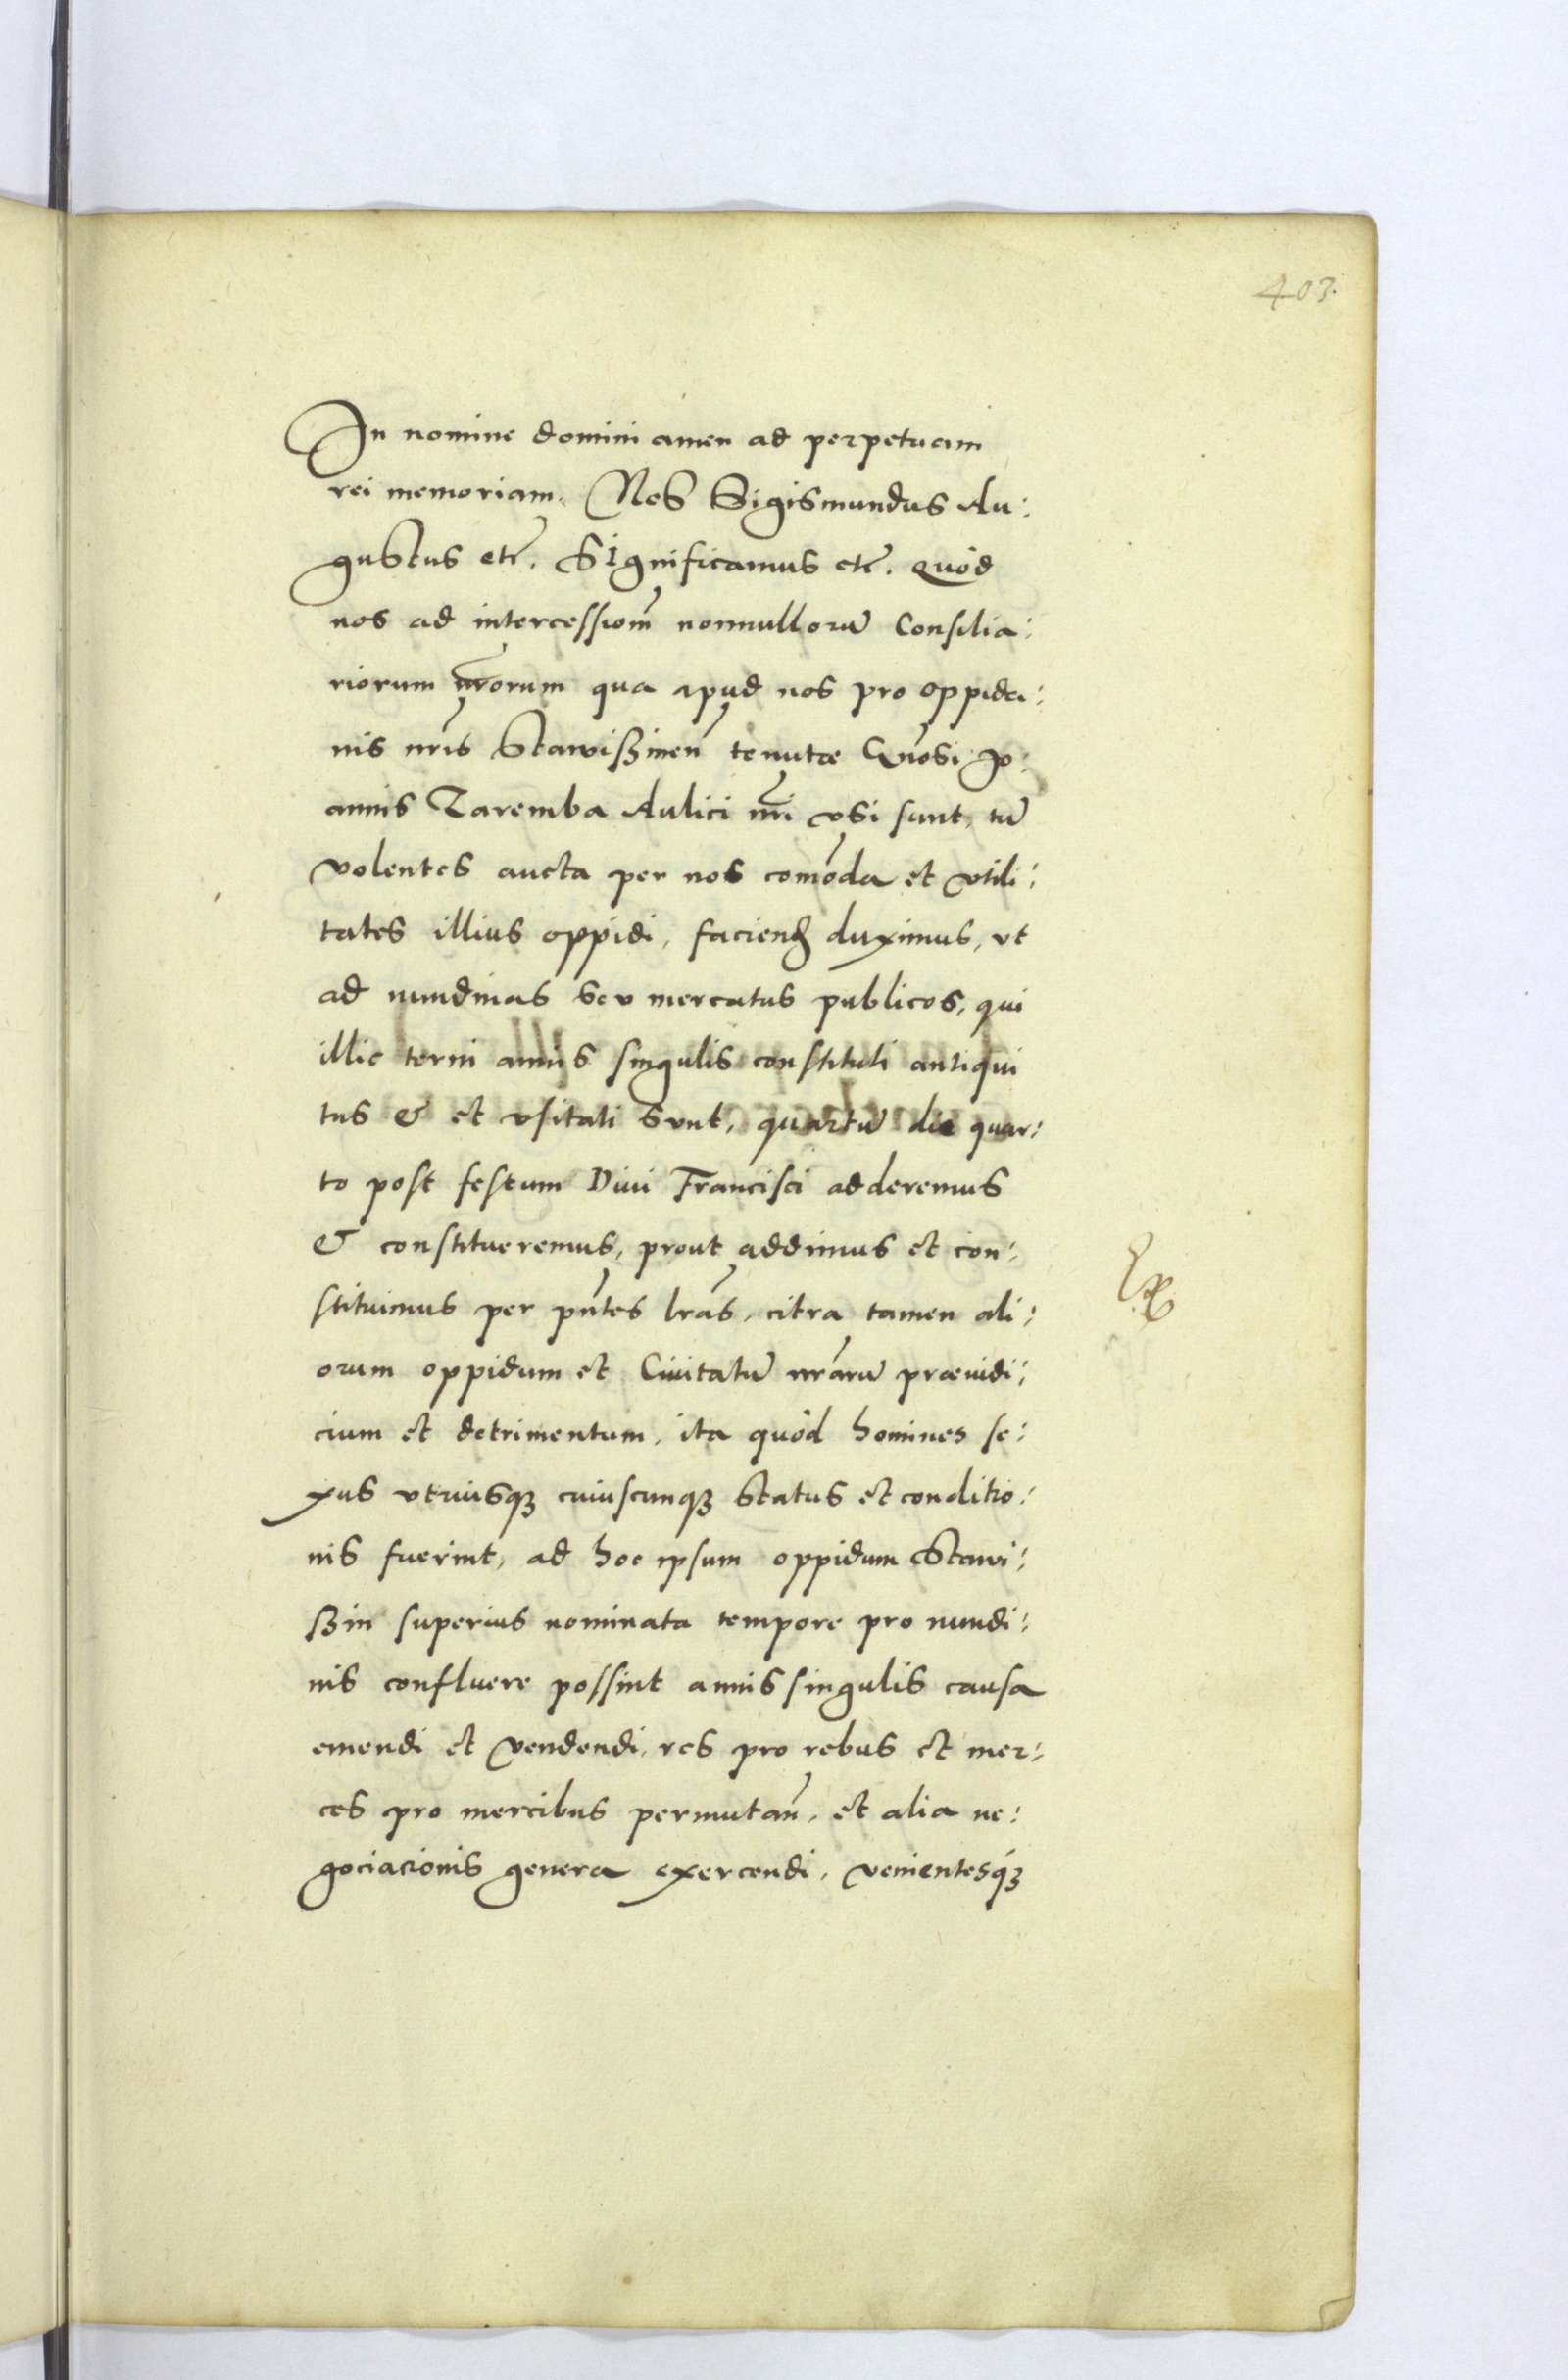 403.
In nomine domini amen ad perpetuam
rei memoriam. Nos Sigismundus Au:
gustus etc. Significamus etc. quod
nos ad intercessionem nonnullorū Consilia:
riorum nr̄orum qua apud nos pro oppida:
nis nr̄is Stawiszinen̄ tenutæ Gn̄osi Jo:
annis Zaremba Aulici nr̄i vsi sunt, tū
volentes aucta per nos com̄oda et vtili:
tates illius oppidi, faciend̄ duximus, vt
ad nundinas seu mercatus publicos, qui
illic terni annis singulis constituti antiqui
tus & et vsitati sunt, quartū die quar:
to post festum Diui Francisci adderemus
& constitueremus, prout addimus et con:
stituimus per pn̄tes lr̄as, citra tamen ali:
orum oppidum et Ciuitatū nr̄arū præiudi:
cium et detrimentum, ita quòd homines se:
xus vtriusqȝ cuiuscunqȝ status et conditio:
nis fuerint, ad hoc ipsum oppidum Stawi:
szin superius nominata tempore pro nundi:
nis confluere possint annis singulis causa
emendi et vendendi, res pro rebus et mer:
ces pro mercibus permutan̄, et alia ne:
gociacionis genera exercendi, venientesqȝ